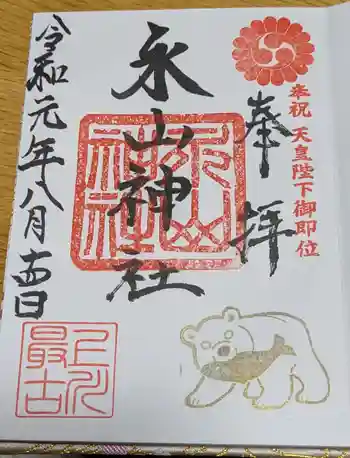 奉拝
奉祝 天皇陛下御即位
永山神社
永山神社
令和元年八月十四日
上川最古